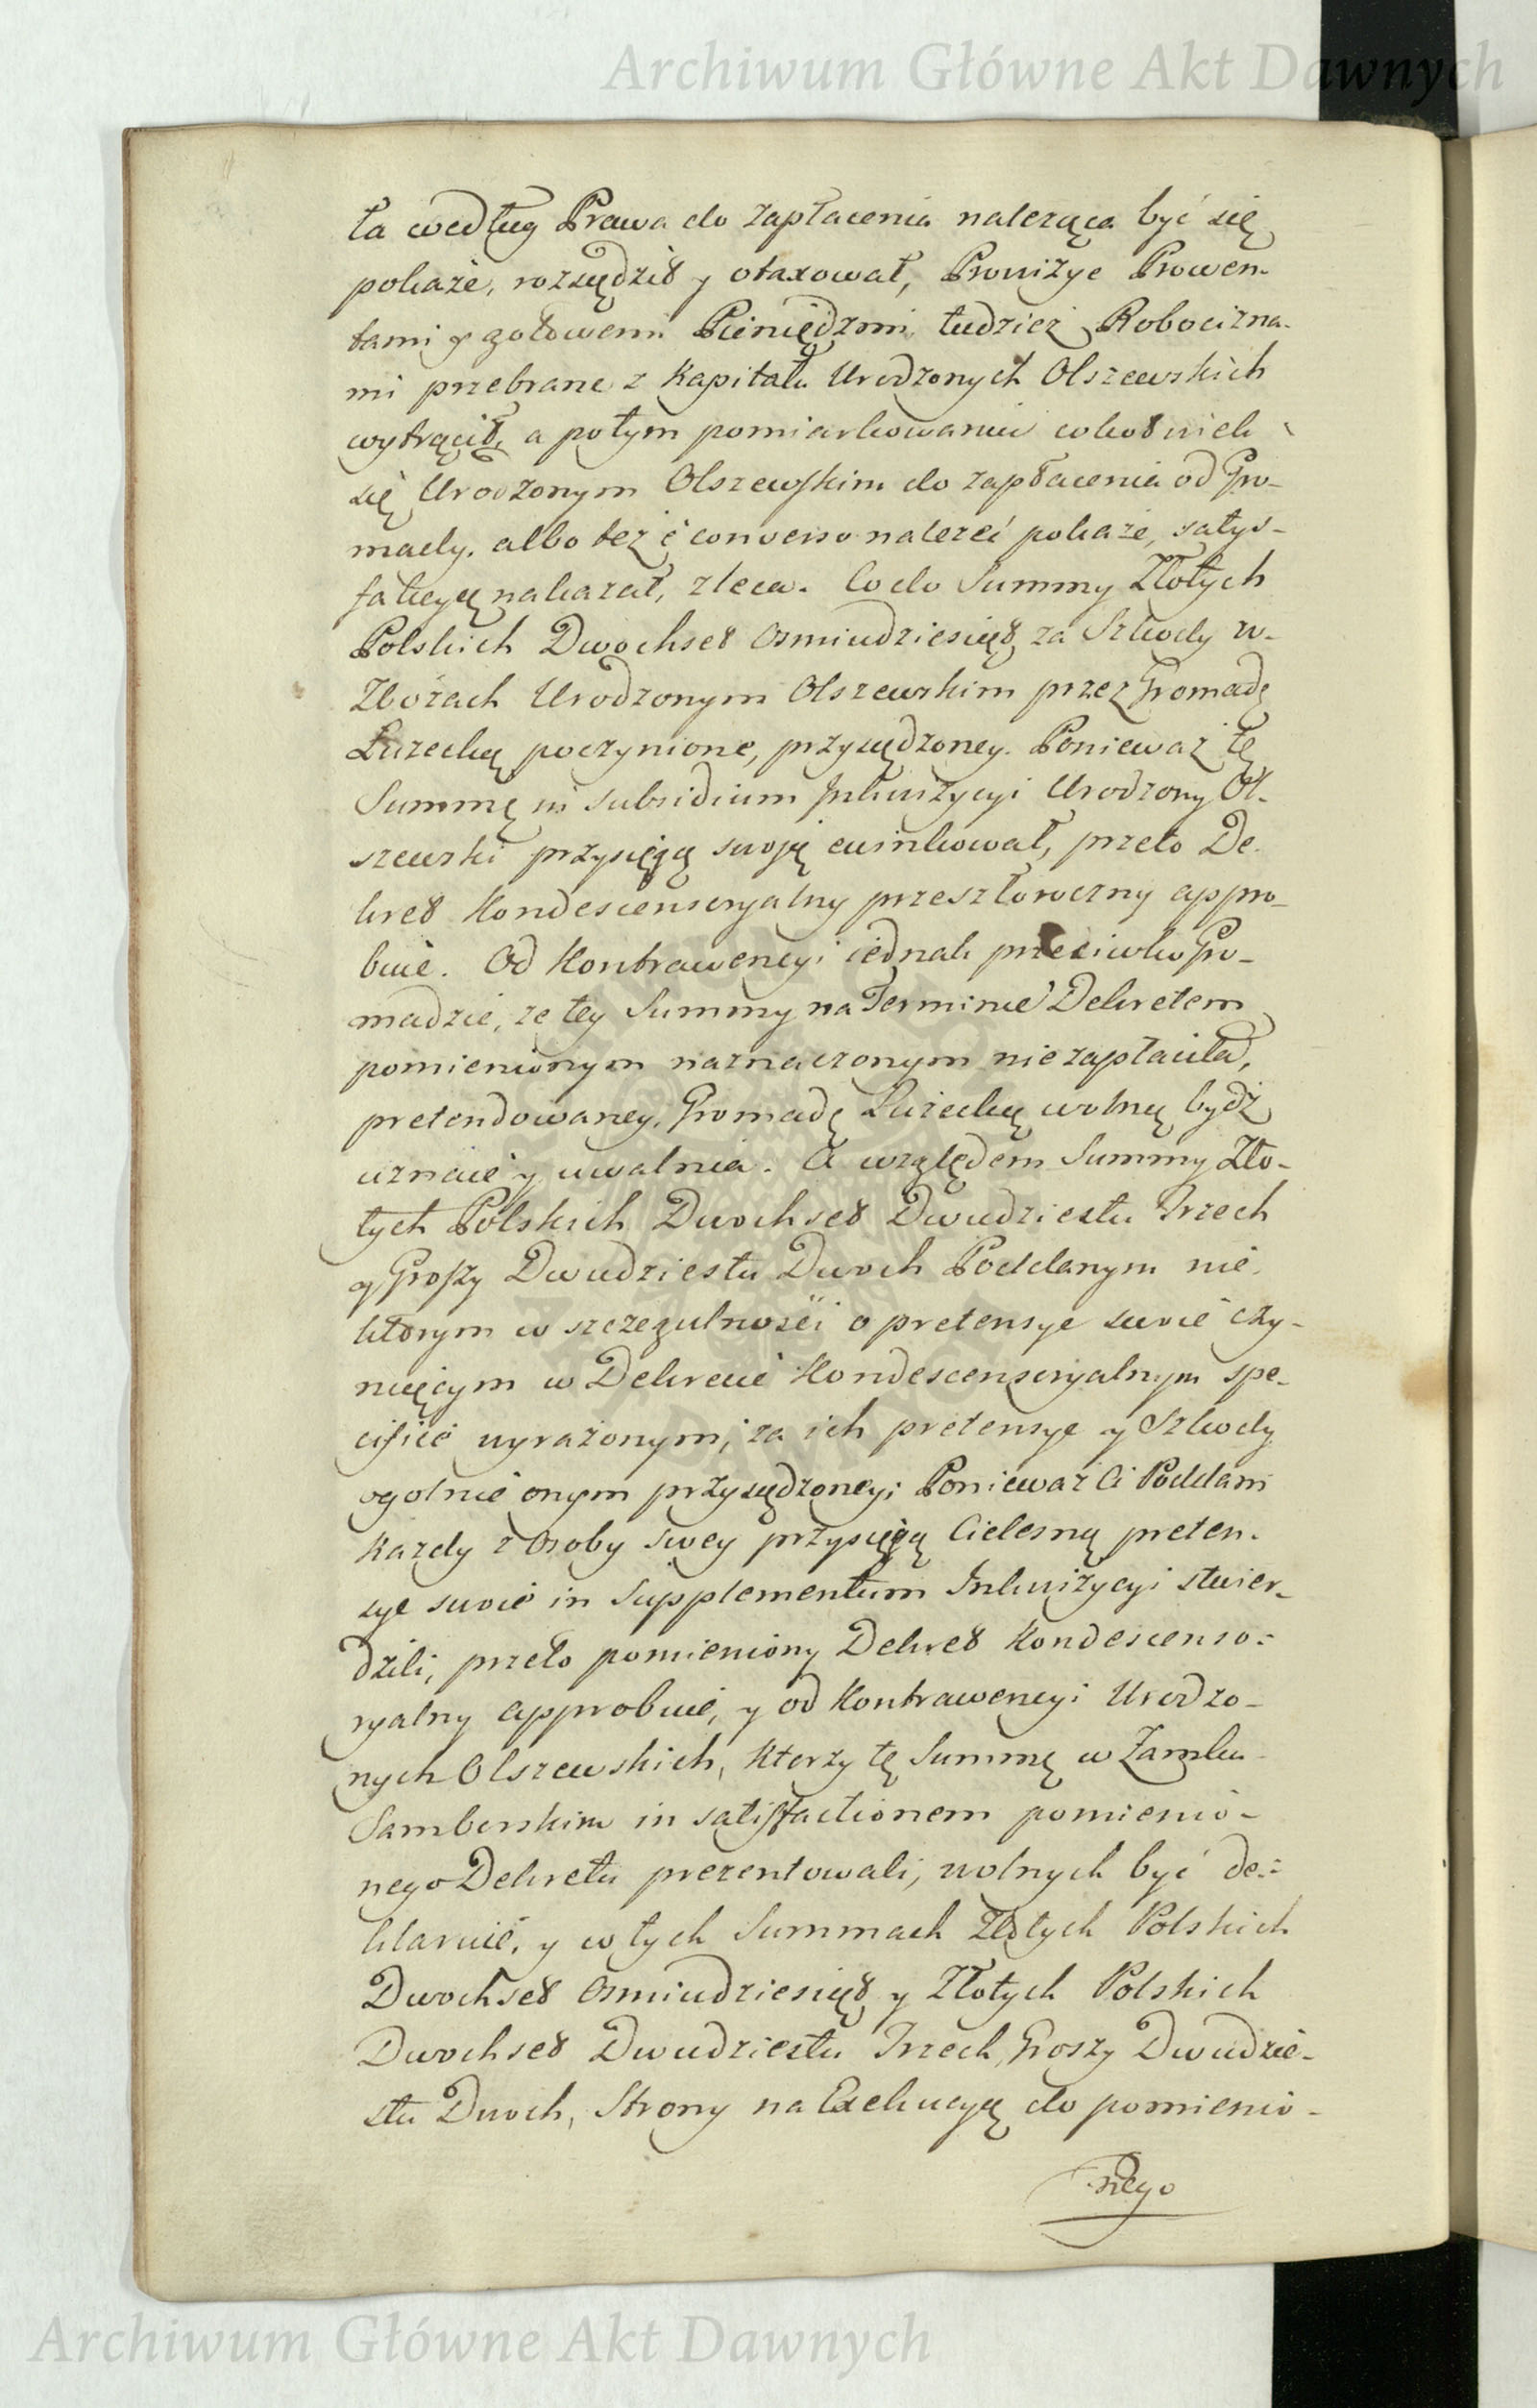 Archiwum Główne Akt Dawnych
ta według Prawa do zapłacenia należąca być się
pokaże, rozsądził y otaxował, Prowizye Prowen-
tami y gotowemi Pieniędzmi tudzież Robocizna-
mi przebrane z Kapitału Urodzonych Olszewskich
wytrącił, a potym pomiarkowaniu cokolwiek
się Urodzonym Olszewskim do zapłacenia od Gro-
mady, albo też è converso należeć pokaże, satys-
fakcyą nakazał, zleca. Co do Summy Złotych
Polskich Dwochset Osmiudziesiąt za Szkody w
Zbożach Urodzonym Olszewskim przez Gromadę
Łużecką poczynione, przysądzoney. Ponieważ tę
Summę in subsidium Inkwizycyi Urodzony Ol-
szewski przysięgą swoją ewinkował, przeto De-
kret Kondescensoryalny przeszłoroczny appro-
buie. Od Kontrawencyi iednak przeciwko Gro-
madzie, że tey Summy na Terminie Dekretem
pomienionym naznaczonym nie zapłaciła,
pretendowaney, Gromadę Łużecką wolną bydź
uznaie y uwalnia. A względem Summy Zło-
tych Polskich Dwochset Dwudziestu Trzech
y Groszy Dwudziestu Dwoch Poddanym nie-
ktorym w szczegulności o pretensye swoie czy-
niącym w Dekrecie Kondescensoryalnym spe-
cificè wyrażonym, za ich pretensye y Szkody
ogolnie onym przysądzoney; Ponieważ Ci Poddani
Każdy z Osoby swey przysięgą Cielesną preten-
sye swoie in Supplementum Inkwizycyi stwier-
dzili, przeto pomieniony Dekret Kondescenso-
ryalny approbuie, y od Kontrawencyi Urodzo-
nych Olszewskich, Ktorzy tę Summę w Zamku
Samborskim in satisfactionem pomienio-
nego Dekretu prezentowali, wolnych być de-
klaruie, y w tych Summach Złotych Polskich
Dwochset Osmiudziesiąt y Złotych Polskich
Dwochset Dwudziestu Trzech, Groszy Dwudzie-
stu Dwoch, Strony na Exekucyą do pomienio-
nego
Archiwum Główne Akt Dawnych